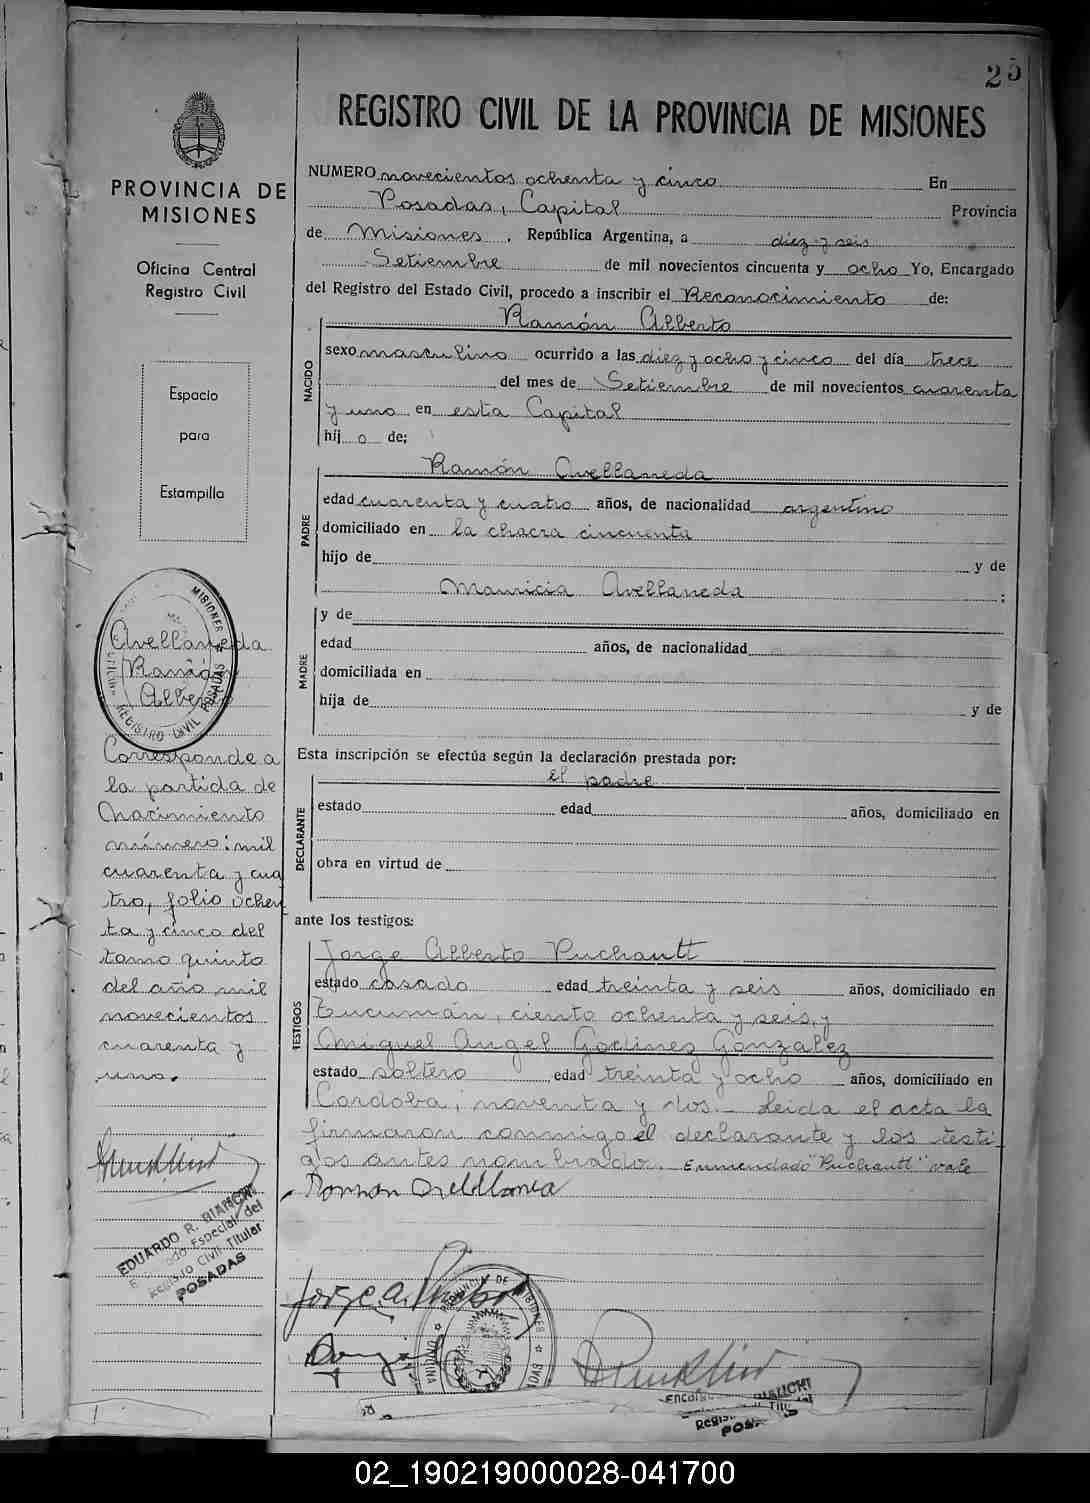 25
REGISTRO CIVIL DE LA PROVINCIA DE MISIONES
PROVINCIA DE
MISIONES
Oficina Central
Registro Civil
Espacio
para
Estampilla
NUMERO novecientos ochenta y cinco En
Posadas, Capital Provincia
de Misiones, República Argentina, a diez y seis
Setiembre de mil novecientos cincuenta y ocho Yo, Encargado
del Registro del Estado Civil, procedo a inscribir el Reconocimiento de:
NACIDO
Ramón Alberto
sexo masculino ocurrido a las diez y ocho y cinco del día trece
del mes de Setiembre de mil novecientos cuarenta
y uno en esta Capital
hij o de;
PADRE
Ramón Avellaneda
edad cuarenta y cuatro años, de nacionalidad argentino
domiciliado en la chacra cincuenta
hijo de y de
Mauricia Avellaneda ;
MADRE
y de
edad años, de nacionalidad
domiciliada en
hija de y de
Esta inscripción se efectúa según la declaración prestada por:
DECLARANTE
el padre
estado edad años, domiciliado en
obra en virtud de
ante los testigos:
TESTIGOS
Jorge Alberto Puchautt
estado casado edad treinta y seis años, domiciliado en
Tucumán, ciento ochenta y seis, y
Miguel Angel Godinez Gonzalez
estado soltero edad treinta y ocho años, domiciliado en
Cordoba, noventa y dos.- Leida el acta la
firmaron conmigo el declarante y los testi-
gos antes nombrado. Enmendado "Puchautt" vale
Avellaneda
Ramón
Alberto
MISIONES
REGISTRO CIVIL POSADAS
Corresponde a
la partida de
Nacimiento
número: mil
cuarenta y cua
tro, folio ochen
ta y cinco del
tomo quinto
del año mil
novecientos
cuarenta y
uno.
EDUARDO R. BIANCHI
Especial del
Registro Civil Titular
POSADAS
Jorge A.
PROVINCIA DE MISIONES
BIANCHI
02_190219000028-041700